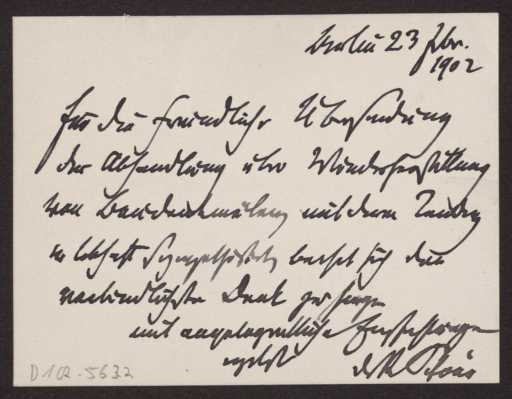 Berlin 23 Fbr.
1902
Für die freundliche Übersendung
der Abhandlung über Wiederherstellung
von Baudenkmälern mit deren Tendenz
er lebhaft sympathisirt, beehrt sich den
verbindlichsten Dank zu sagen
mit angelegentlicher Empfehlung
ergebst
D 102-5632